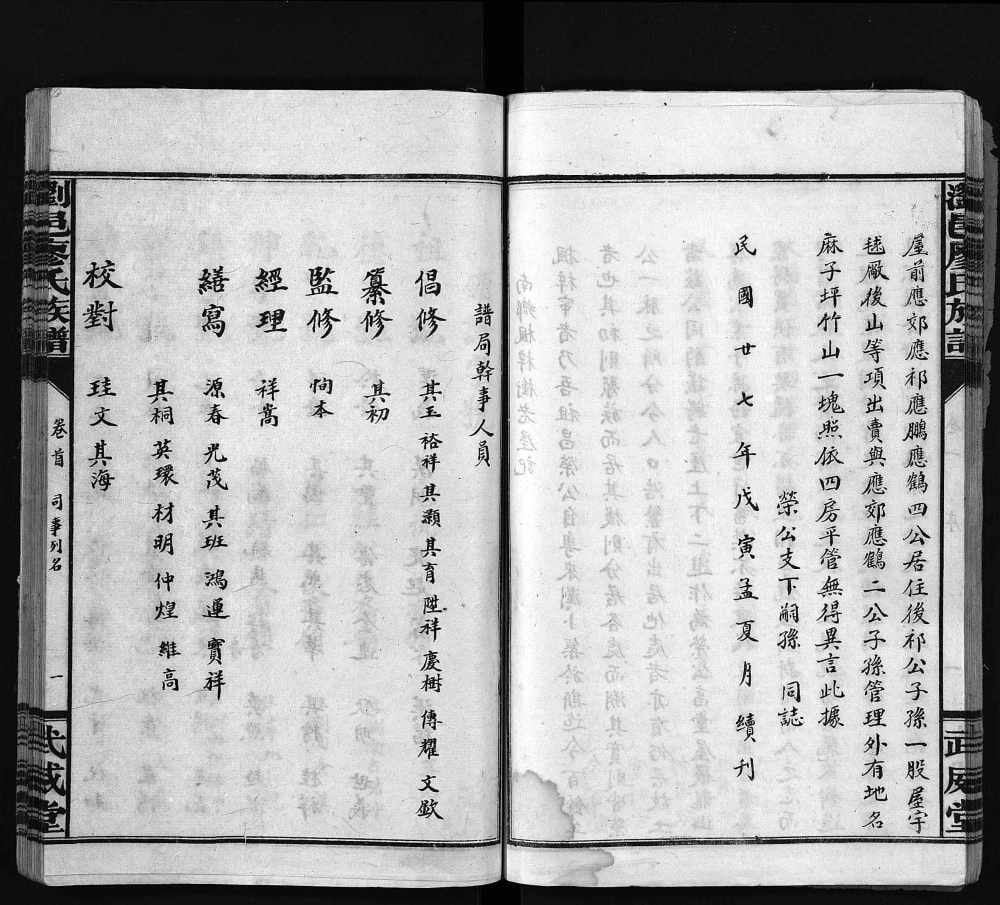 瀏邑廖氏族譜
武威堂
屋前應郊應祁應鵬應鶴四公居住後祁公子孫一股屋宇
毬廠後山等項出賣與應郊應鶴二公子孫管理外有地名
麻子坪竹山一塊照依四房平管無得異言此據
榮公支下嗣孫 同誌
民國廿七年戊寅孟夏月續刊
譜局幹事人員
倡修 其玉 裕祥 其灝 其育 陞祥 慶樹 傳耀 文欽
纂修 其初
監修 恂本
經理 祥嵩
繕寫 源春 光茂 其班 鴻運 寶祥
其桐 英環 材明 仲煌 維高
校對 珪文 其海
瀏邑廖氏族譜
卷首 司事列名
一
武威堂